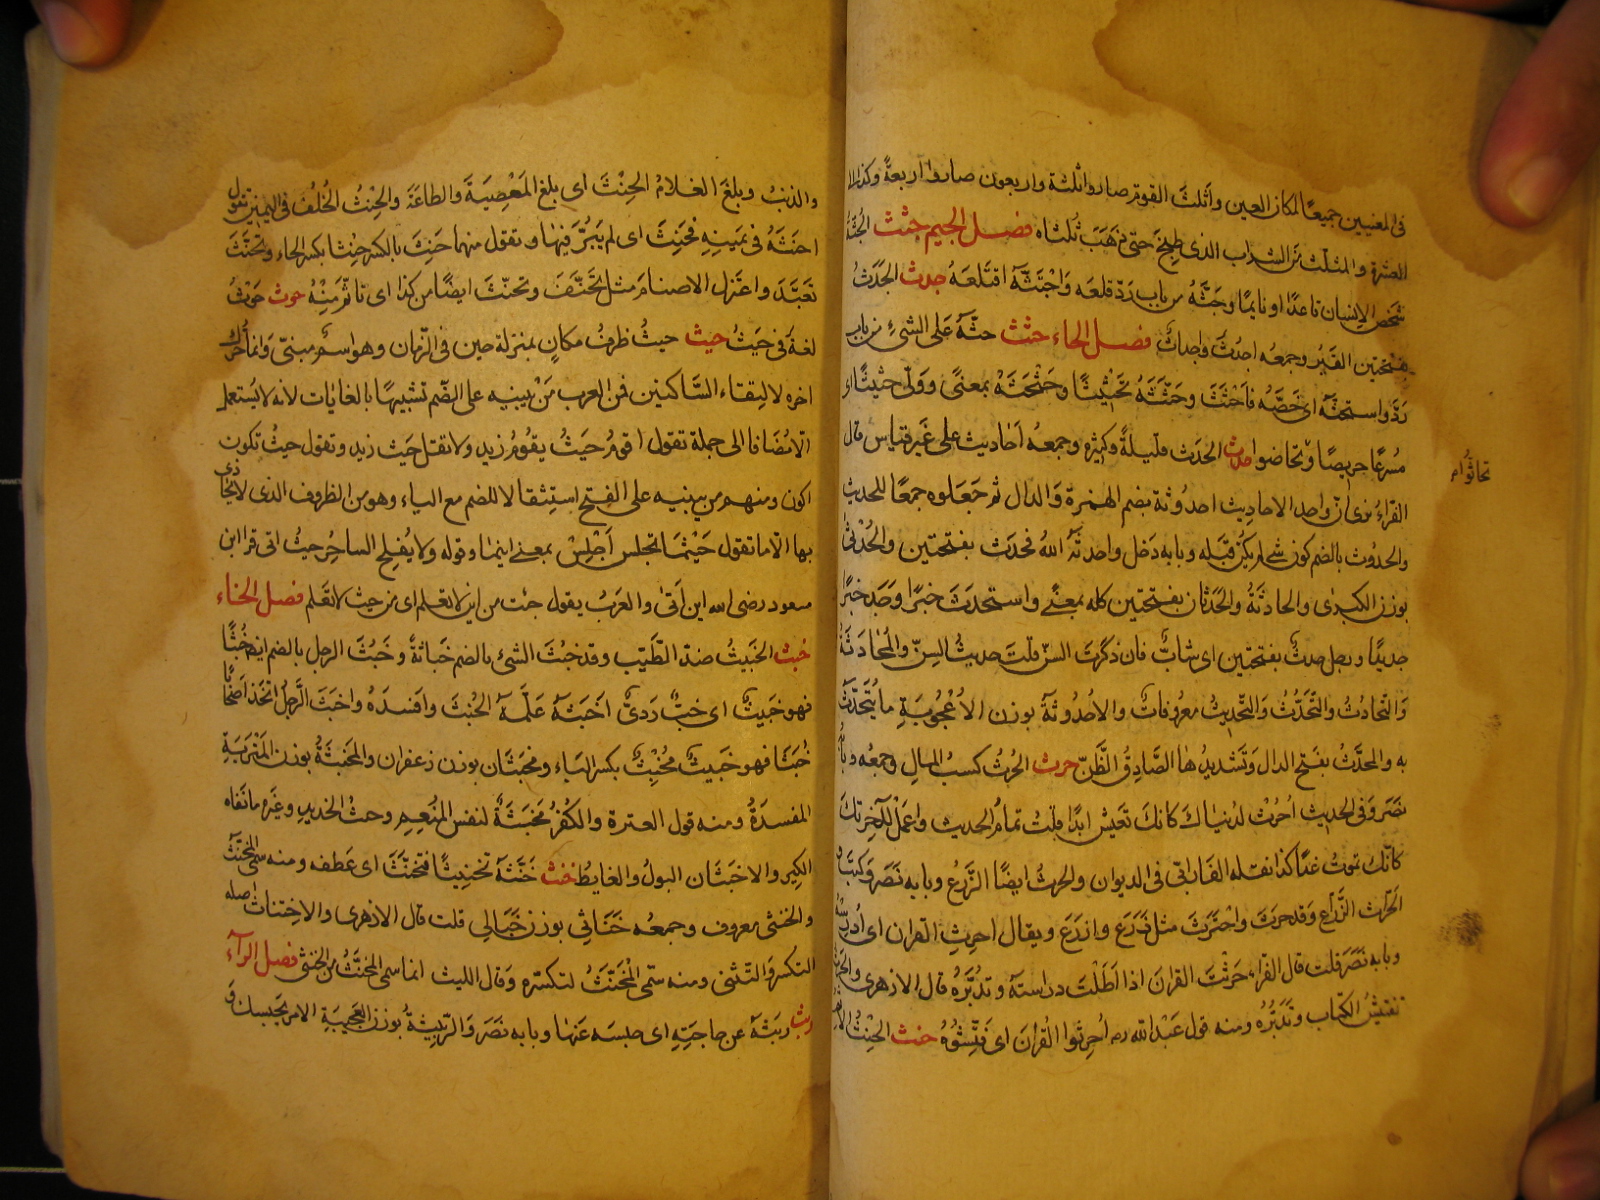 فى المعنيين جميعًا لمكان العين وأثلث القوم صاروا ثلثة واربعون صاروا أربعة وكذا الا
العشرة والمثلث من الشراب الذى طبخ حتى ذهب ثلثاه فصل الجيم جثث الجُثَّة
شخص الإنسان قاعدًا او نايمًا وجثّه من باب ردّ قلعه واجْتَثَّه اقتلعه جدث الجَدَث
بفتحتين القبر وجمعه اجدُث واجداث فصل الحاء حثث حثّه على الشئ من باب
ردّ واستحثه اى حَضَّه فاحْتَثَّ وحَثَّثَه تحثيثًا وحَثْحَثَه بمعنًى وولّى حثيثًا اى
مُسرعًا حريصًا وتحاضوا حدث الحديث قليله وكثيره وجمعه أحاديث على غير قياس قال
تحاثّوا م
الفراء نرى انّ واحد الاحاديث احدُوثة بضم الهمزة والدال ثم جعلوه جمعًا للحديث
والحدُوث بالضم كون شئ لم يكن قبله وبابه دخل واحدثه اللهُ فحدَث بفتحتين والحُدْثَى
بوزن الكبرى والحادثةُ والحَدَثان بفتحتين كله بمعنًى واستحدث خبرًا وجد خبرًا
جديدًا ورجل حدث بفتحتين اى شابٌّ فان ذكرت السنّ قلت حديثُ السِنّ والمُحادثَةُ
والتَّحادُثُ والتَّحدُّثُ والتَّحديثُ معرُوفات والاحدُوثة بوزن الأُعْجُوبةِ ما يُتحَدّث
به والمحدَّث بفتح الدال وتشديدها الصَّادِق الظَّنّ حرث الحرثُ كسب المال وجمعه وبابه
نصر وفى الحديث احْرُث لدنياك كانك تعيش ابدًا قلتُ تمامُ الحديث واعْمَلْ لآخرتك
كانّك تموتُ غدًا كذا نقله الفارابى فى الديوان والحرث ايضًا الزَّرْعُ وبابه نصَر وكتب و
الحرّاث الزَّرّاع وقد حرث واحْترَث مثل زَرَع وازدَرَع ويقال احرث القران اى أدرسه
وبابه نصَر قلت قال الفرّاء حَرثْتُ القرانَ اذا أطلتَ دراستَه وتدبُّرَهُ قال الازهرى والحرث
تفتيشُ الكتاب وتدبّرُه ومنه قول عبد الله رم أُحرثُوا القُرانَ اى فَتِّشُوهُ حنث الحِنْثُ الاثم
والذنبُ وبلغ الغلامُ الحِنْثَ اى بلغ المَعْصِيَةَ والطاعَةَ والحِنْثُ الخُلفُ فى اليمين تقول
احنَثَهُ فى يمينِهِ فحَنِثَ اى لم يَبَرَّ فيها وتقول منهما حَنِث بالكسر حِنْثًا بكسر الحاء وتَحنَّثَ
تعَبَّد واعتزل الاصنام مثل تحَنَّفَ وتحنّث ايضًا من كذا اى تأثّم منهُ حوث حَوْثُ
لغة فى حَيْثُ حيث حيثُ ظرفُ مكانٍ بمنزلة حين فى الزمان وهو اسم مبنىّ وانما حُرّك
اخره لالتقاء السَّاكنين فمن العرب مَنْ يبنيه على الضّم تشبيهًا بالغايات لأنه لا يُستعمل
الّا مُضافا الى جملة تقول اقومُ حَيْثُ يقُومُ زيد ولا تقل حَيْث زيد وتقول حيثُ تكون
اكون ومنهم من يبنيه على الفتح استثقالا للضم مع الياء وهو من الظروف الذى لا يُجازى
بها الّا ما تقول حَيْثُما تجلس أَجْلِسْ بمعنى اينما وقوله ولا يُفلِح الساحِرُ حيثُ اتى قرا ابن
مسعود رضى الله اين أتى والعرب يقول جئت من اين لا تعلم اى من حيث لا تعلم فصل الخاء
خبث الخَبيثُ ضدّ الطَّيّب وقد خبُث الشئ بالضم خَباثةً وخَبُثَ الرجل بالضم ايضًا خُبْثًا
فهو خَبيثٌ اى خبٌّ رَدىٌّ اخبَثهُ علّمهُ الخُبْث وافسَدهُ واخبَث الرَّجلُ اتخذ اصْحَابًا
خُبَثا فهو خَبيثٌ مُخْبِثٌ بكسر الباء ومخبَثَان بوزن زعفران والمَخْبَثةُ بوزن المَتْرَبَةِ
المفسَدَةُ ومنه قول العترة والكُفْرُ مَخْبَثَةٌ لنفس المُنْعِمِ وخبث الحديدِ وغيره ما نفاه
الكير والاخبَثَان البولُ والغايطُ خنث خَنَّثَهُ تخنيثًا فتخنَّث اى عَطفه ومنه سمى المُخنَّث
والخنثى معروف وجمعه خَنَاثى بوزن حَبَالى قلت قال الازهرى والاختناث اصله
التكسر والتّثنى ومنه سمّى المُخنَّثُ لتكسّره وقال الليث انما سمى المخنَّثُ من الخنثى فصل الراء
ربث ربَثَه عن حاجَتِهِ اى حبسه عَنها وبابه نصَر والرَّبيثةُ بوزن العَجيبَةِ الامر يحبسك و